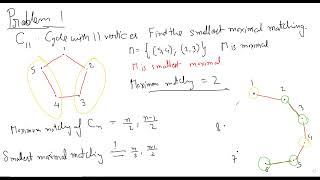 Problem 1
C11 Cycle with 11 vertices Find the smallest maximal matching.
M = {(5,4), (2,3)} M is maximal
M is smallest maximal
Maximum matching = 2
1
5
2
4
3
Maximum matching of Cn = n/2, n-1/2
Smallest maximal matching
1
2
3
4
5
6
7
8